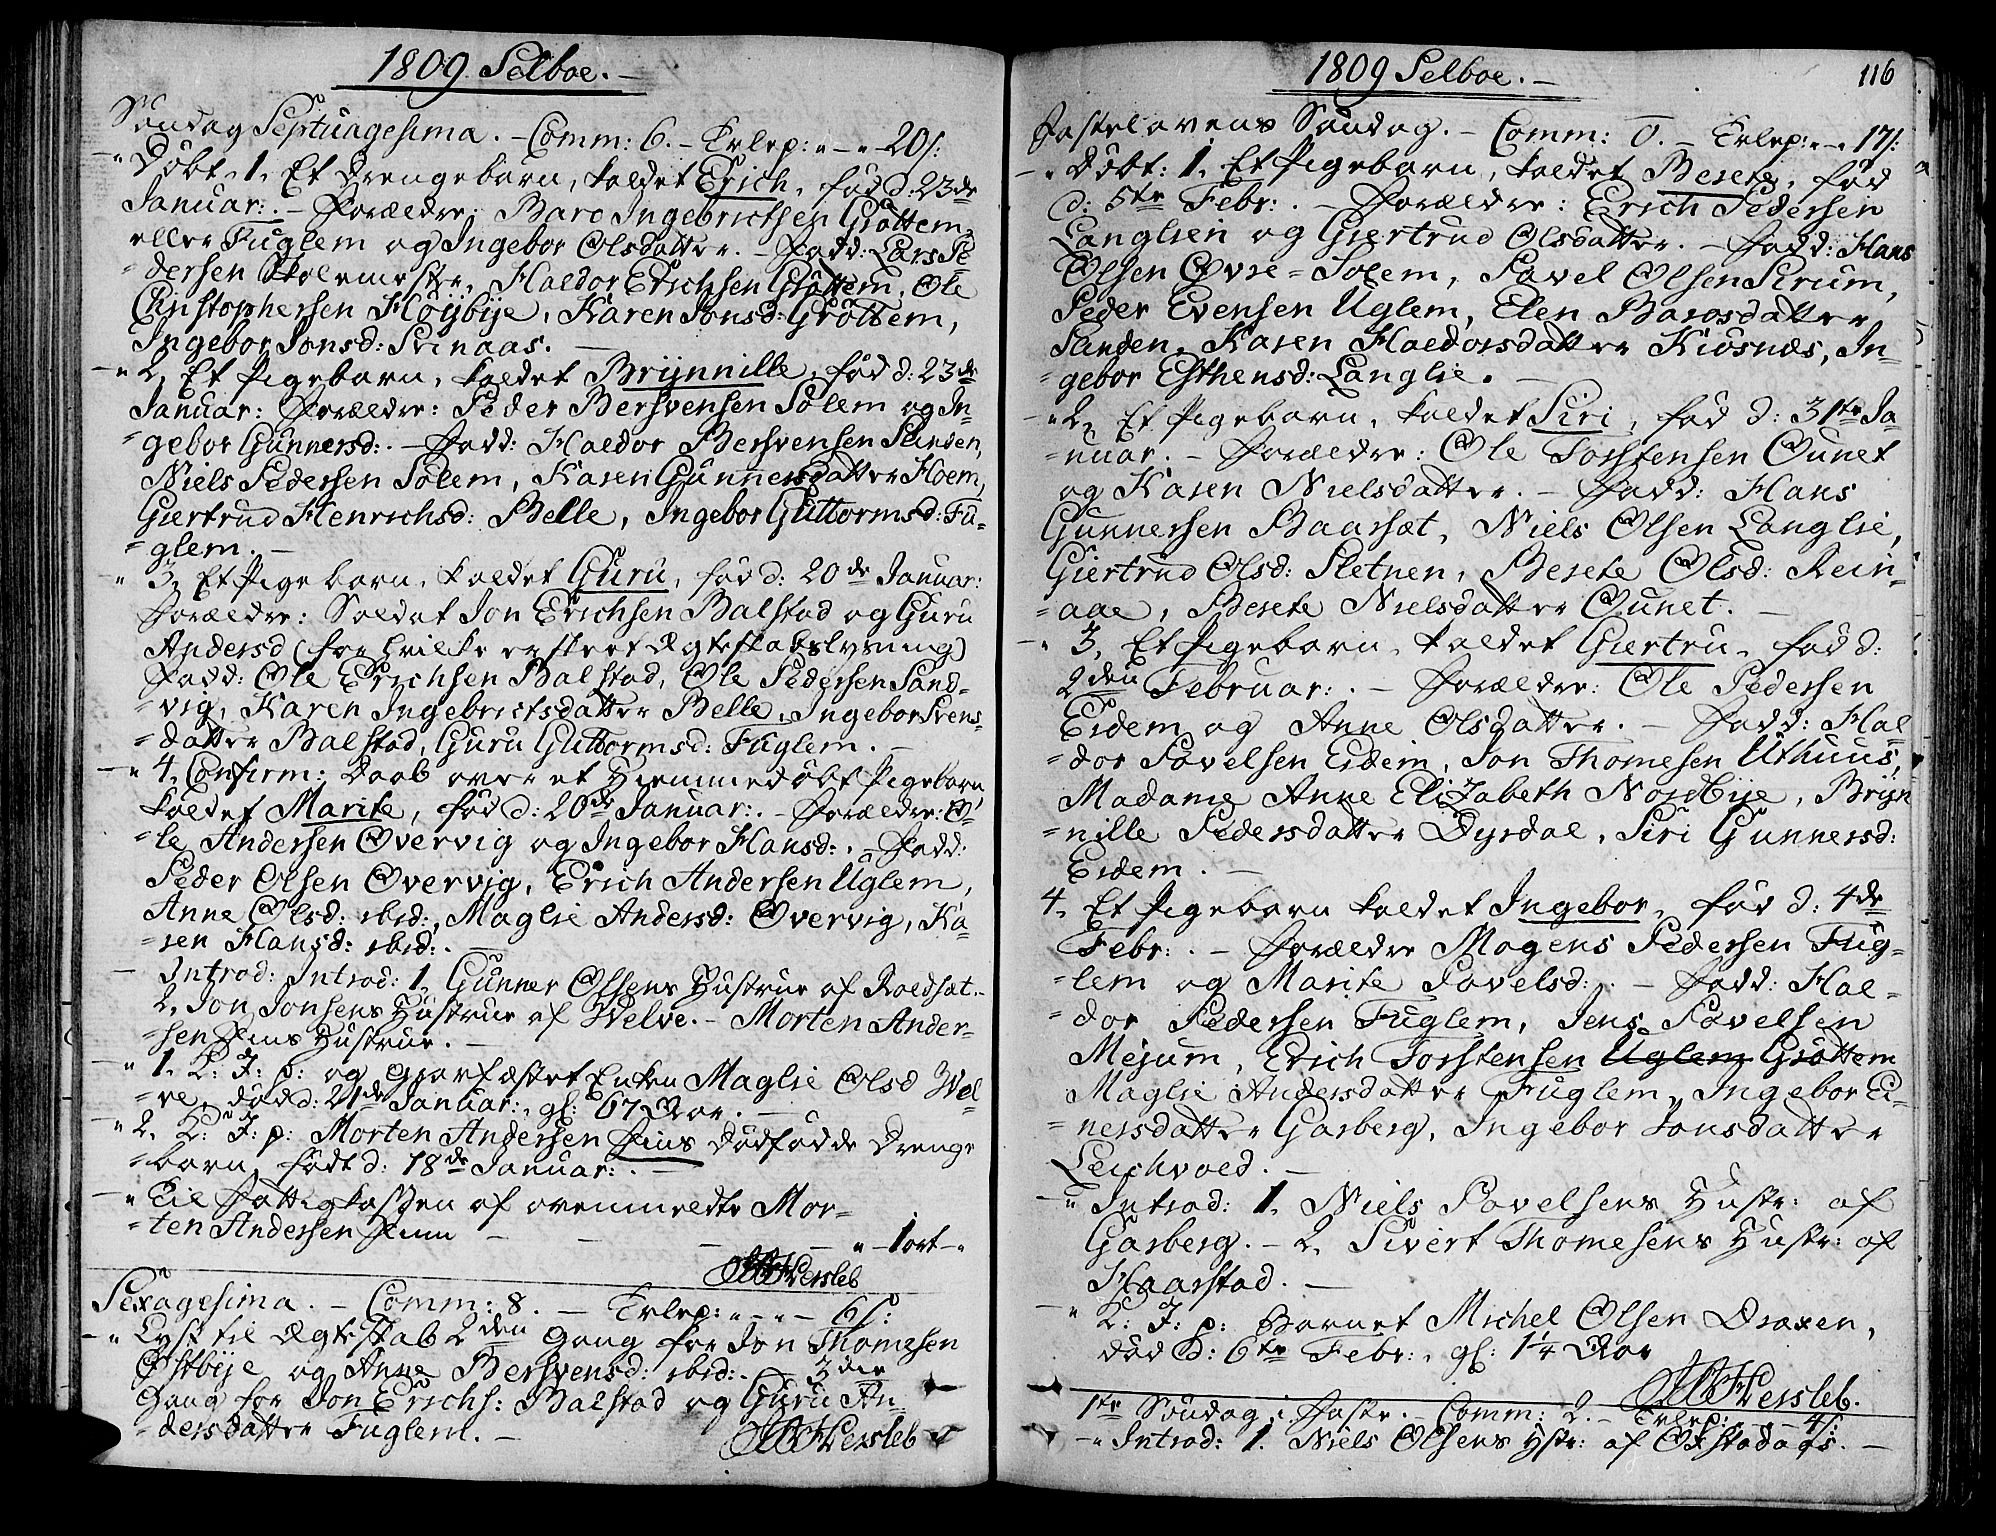 1809 Selboe. –
Søndag Septuagesima. – Comm: 6. – Tvlvp: " – " – 20 s:
– " Døbt. 1. Et Drengebarn, kaldet Erich, fød d: 23de
Januar: . – Forældre: Baro Ingebrictsen Grøttem,
eller Fuglem og Ingebor Olsdatter. – Fadd: Lars Pe-
=dersen Skolemester, Haldor Erichsen Grøttem, Ole
Christophersen Høiibÿe, Karen Jonsd: Grøttem,
Ingebor Jonsd: Svinaas. –
– " 2, Et Pigebarn, kaldet Brÿnnille, fød d: 23de
Januar: Forældre: Peder Bersvensen Solem og In-
=gebor Gunnersd: . – Fadd: Haldor Bersvensen Slinsen,
Niels Pedersen Solem, Karen Gunnersdatter Hoem,
Giertrud Henrichsd: Belle, Ingebor Guttormsd: Fu-
=glem. –
" 3, Et Pigebarn, kaldet Guru, fød d: 20de Januar:
Forældre: Soldat Jon Erichsen Balstad og Guru
Andersd (for hvilke er skeet Ægteskabslysning)
Fadd: Ole Erichsen Balstad, Ole Pedersen Sand-
=vig, Karen Ingebrictsdatter Belle, Ingebor Svens-
=datter Balstad, Guru Guttormsd: Fuglem. –
– " 4, Confirm: Daab over et Hiemmedøbt Pigebarn
kaldet Marite, fød d: 20de Januar: . – Forældre: O-
=le Andersen Overvig og Ingebor Hansd: . – Fadd:
Peder Olsen Overvig, Erich Andersen Uglem,
Anne Olsd: ibid:, Maglie Andersd: Overvig, Ka-
=ren Hansd: ibid: . –
– Introd: Introd: 1, Gunner Olsens Hustrue af Roldsæt. –
2, Jon Jonsens Hustrue af Welve. – Morten Ander-
=sen Fins Hustrue. –
" 1. K: J: p: og Giorfæstet Enken Maglie Olsd Wel-
=ve, død d: 21de Januar:, gl: 67 Aar. –
– " 2. K: J: p: Morten Andersen Fins dødfødde Drenge
=barn, født d: 18de Januar: . –
– " Til Fattigkassen af ovenmeldte Mor-
=ten Andersen Finn – – – – " – 1 ort – "
Hersleb
Sexagesima. – Comm: 8. – Tvlvp: " – " – 6 s:
– " Lyst til Ægteskab 2den Gang for Jon Thomesen
Østbÿe og Anne Bersvensd: ibid: . – 3die
Gang for Jon Erichs: Balstad og Guru An-
=dersdatter Fuglem. –
Hersleb
1809 Selboe. –
116
Fastelavens Søndag. – Comm: 0. – Tvlvp: " – " 17 s:
– " Døbt: 1, Et Pigebarn, kaldet Berete, fød
d: 5te Febr: . – Forældre: Erich Pedersen
Langlien og Giertrud Olsdatter. – Fadd: Hans
Olsen Øvre = Solem, Povel Olsen Sirum,
Peder Evensen Uglem, Elen Barosdatter
Sanden, Karen Haldorsdatter Kiøsnæs, In-
=gebor Esthensd: Langlie. –
– " 2, Et Pigebarn, kaldet Siri, fød d: 31te Ja-
=nuar. – Forældre: Ole Torstensen Ounet
og Karen Nielsdatter. – Fadd: Hans
Gunnersen Baarsæt, Niels Olsen Langlie,
Giertrud Olsd: Sletnen, Berete Olsd: Rein-
=aae, Berete Nielsdatter Ounet. –
– " 3, Et Pigebarn, kaldet Giertru, fød d:
2den Februar: . – Forældre: Ole Pedersen
Eidem og Anne Olsdatter. – Fadd: Hal-
=dor Povelsen Eidem, Jon Thomesen Uthuus,
Madame Anne Elizabeth Nordbÿe, Brÿn-
=nille Pedersdatter Dyrdal, Siri Gunnersd:
Eidem. –
4, Et Pigebarn kaldet Ingebor, fød d: 4de
Febr: . – Forældre Mogens Pedersen Fug-
=lem og Marite Povelsd: . – Fadd: Hal-
=dor Pedersen Fuglem, Jens Povelsen
Mejum, Erich Torstensen Uglem Grøttem
Maglie Andersdatter Fuglem, Ingebor Ei-
=nersdatter Garberg, Ingebor Jonsdatter
Leichvold. –
– " Introd: 1, Niels Povelsens Hustr: af
Garberg. – 2, Sivert Thomesens Hustr: af
Haarstad. –
– " K: J: p: Barnet Michel Olsen Draxen,
død d: 6te Febr:, gl: 1 1/4 Aar
Hersleb.
1te Søndag i Faste. – Comm: 2. – Tvlvp: " – " – 4 s:
– " Introd: 1. Niels Olsens Hstr: af Oxstadaas. –